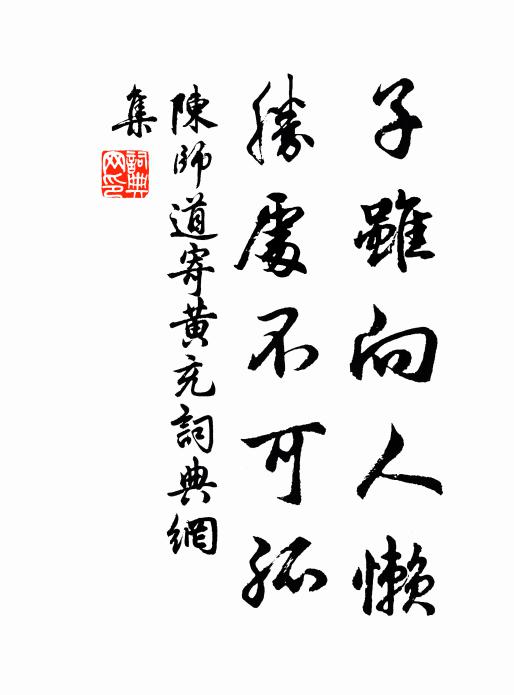 子雖向人懶
勝處不可孤
陳師道寄黄充詞典網
集
詞典网印